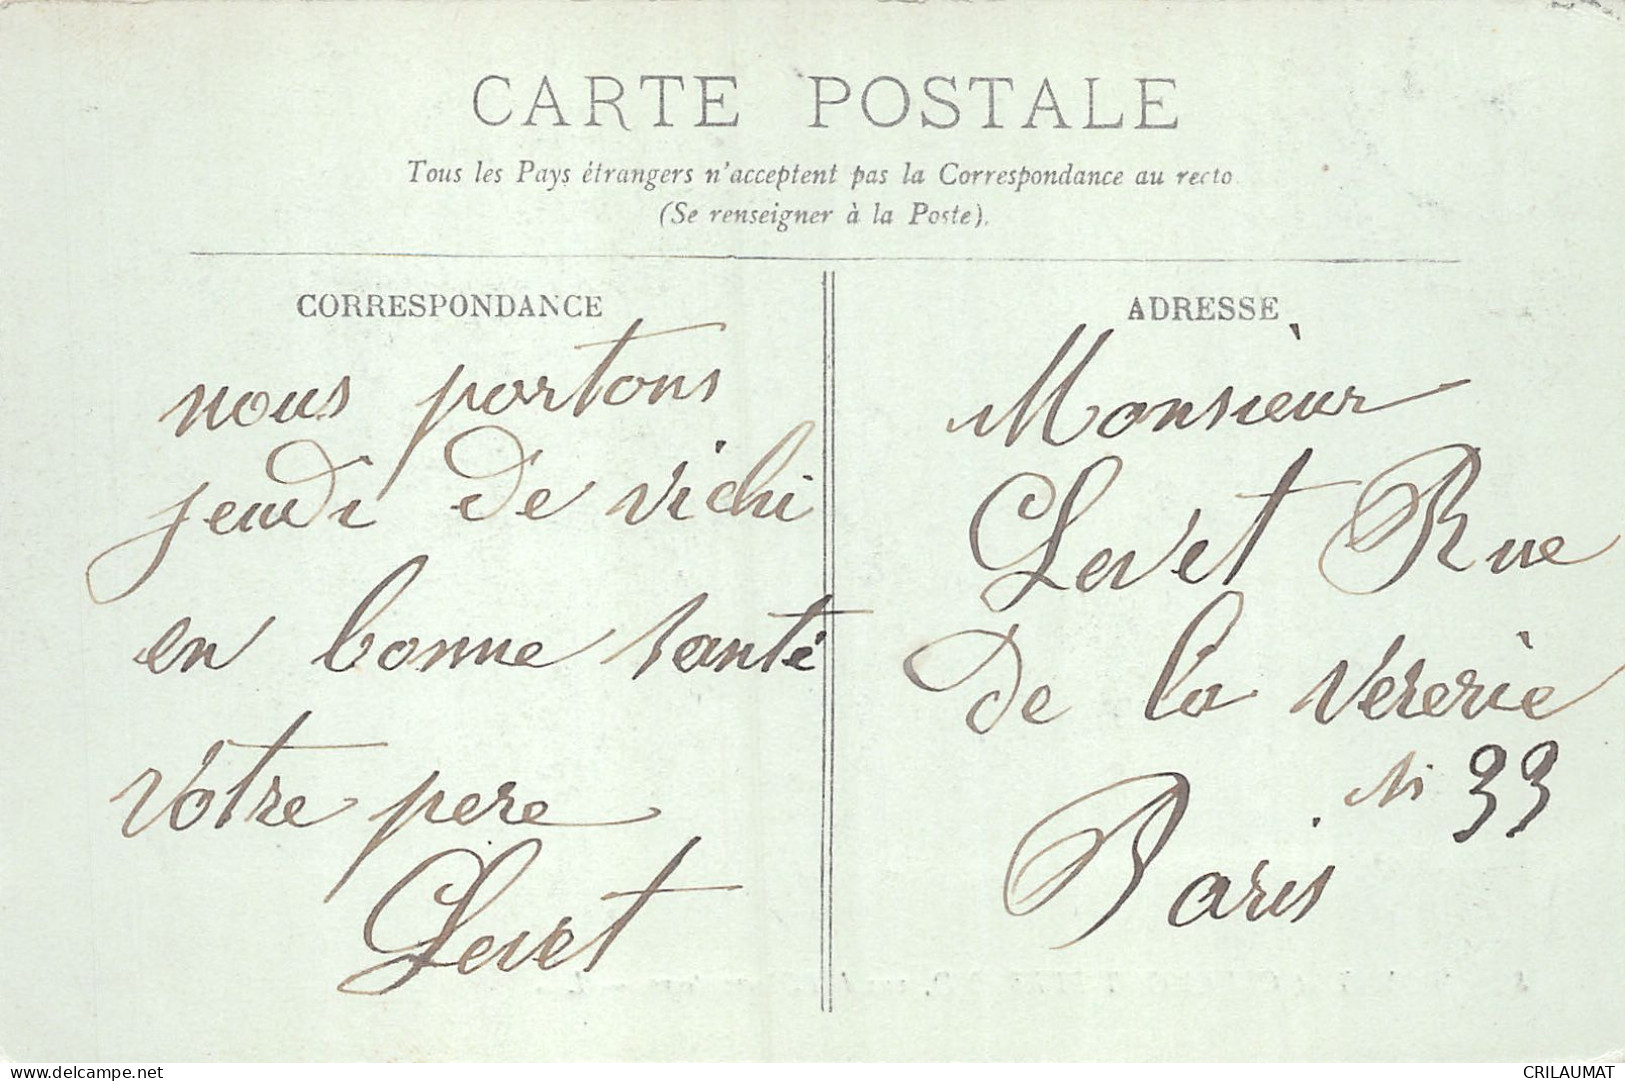 CARTE POSTALE
Tous les Pays étrangers n'acceptent pas la Correspondance au recto
(Se renseigner à la Poste).
CORRESPONDANCE
nous portons
jeudi de vichi
en bonne santé
votre pere
Levet
ADRESSE
Monsieur
Levet Rue
de la Vererie
N 33
Paris
www.delcampe.net
CRILAUMAT